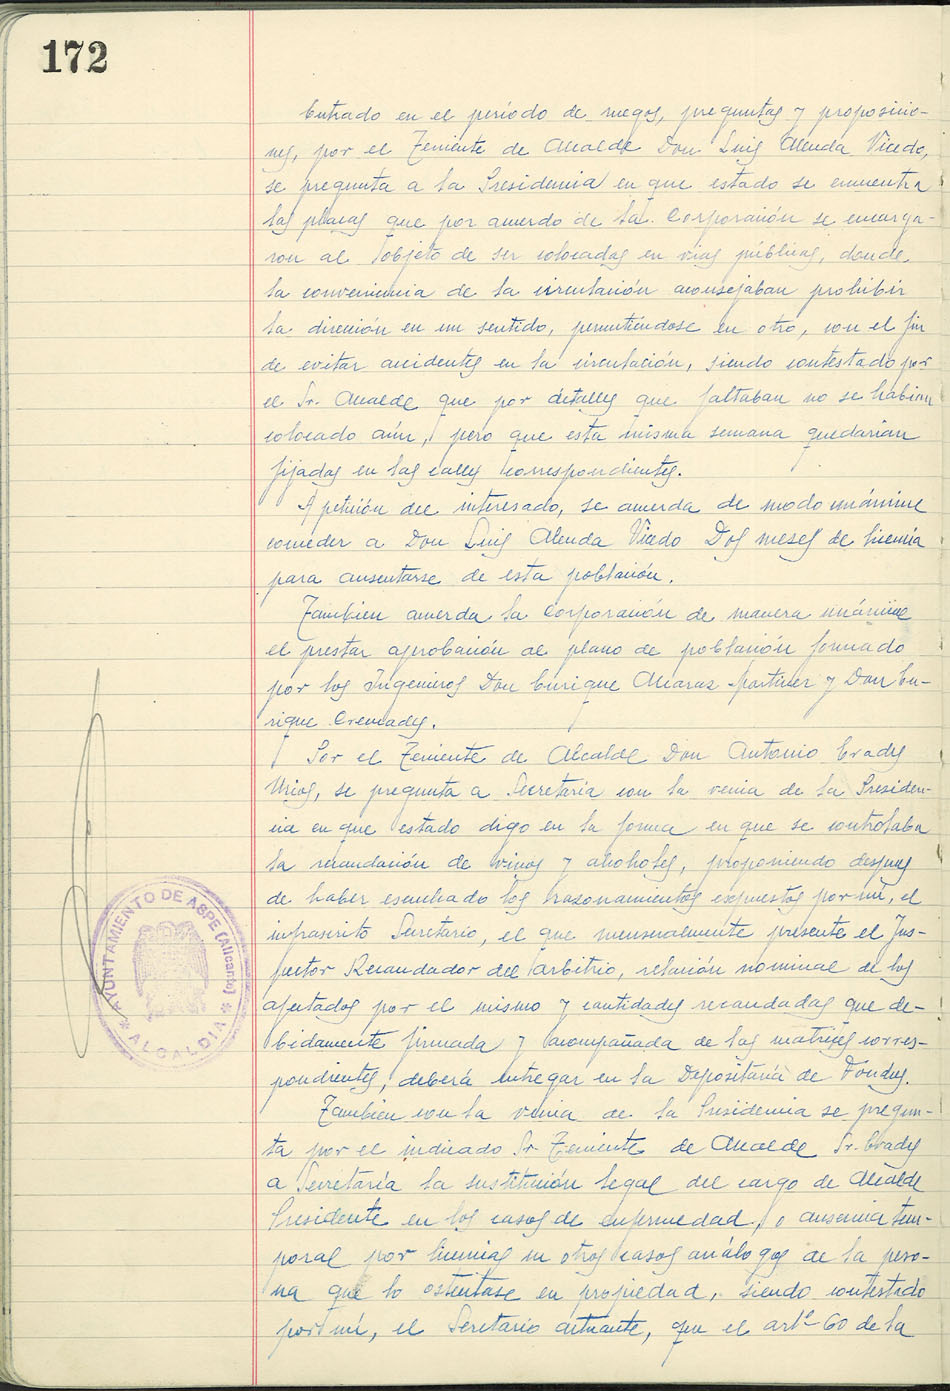 172
Entrado en el período de ruegos, preguntas y proposicio-
nes, por el Teniente de Alcalde Don Luis Alenda Vicedo,
se pregunta a la Presidencia en que estado se encuentra
las placas que por acuerdo de la Corporación se encarga-
ron al objeto de ser colocadas en vias públicas, donde
la conveniencia de la circulación aconsejaban prohibir
la dirección en un sentido, permitiéndose en otro, con el fin
de evitar accidentes en la circulación, siendo contestado por
el Sr. Alcalde que por detalles que faltaban no se habian
colocado aún, pero que esta misma semana quedarian
fijadas en las calles correspondientes.
A petición del interesado, se acuerda de modo unánime
conceder a Don Luis Alenda Vicedo Dos meses de licencia
para ausentarse de esta población.
Tambien acuerda la Corporación de manera unánime
el prestar aprobación al plano de población formado
por los Ingenieros Don Enrique Alcaraz Martinez y Don En-
rique Cremades.
Por el Teniente de Alcalde Don Antonio Erades
Urios, se pregunta a Secretaría con la venia de la Presiden-
cia en que estado digo en la forma en que se controlaba
la recaudación de vinos y alcoholes, proponiendo despues
de haber escuchado los razonamientos expuestos por mi, el
infrascrito Secretario, el que mensualmente presente el Ins-
pector Recaudador del arbitrio, relación nominal de los
afectados por el mismo y cantidades recaudadas que de-
bidamente firmada y acompañada de las matrices corres-
pondientes, deberá entregar en la Depositaría de Fondos.
Tambien con la venia de la Presidencia se pregun-
ta por el indicado Sr Teniente de Alcalde Sr. Erades
a Secretaría la sustitución legal del cargo de Alcalde
Presidente en los casos de enfermedad, o ausencia tem-
poral por licencias u otros casos análogos de la perso-
na que lo ostentase en propiedad, siendo contestado
por mi, el Secretario actuante, que el artº 60 de la
AYUNTAMIENTO DE ASPE (Alicante)
* ALCALDIA *